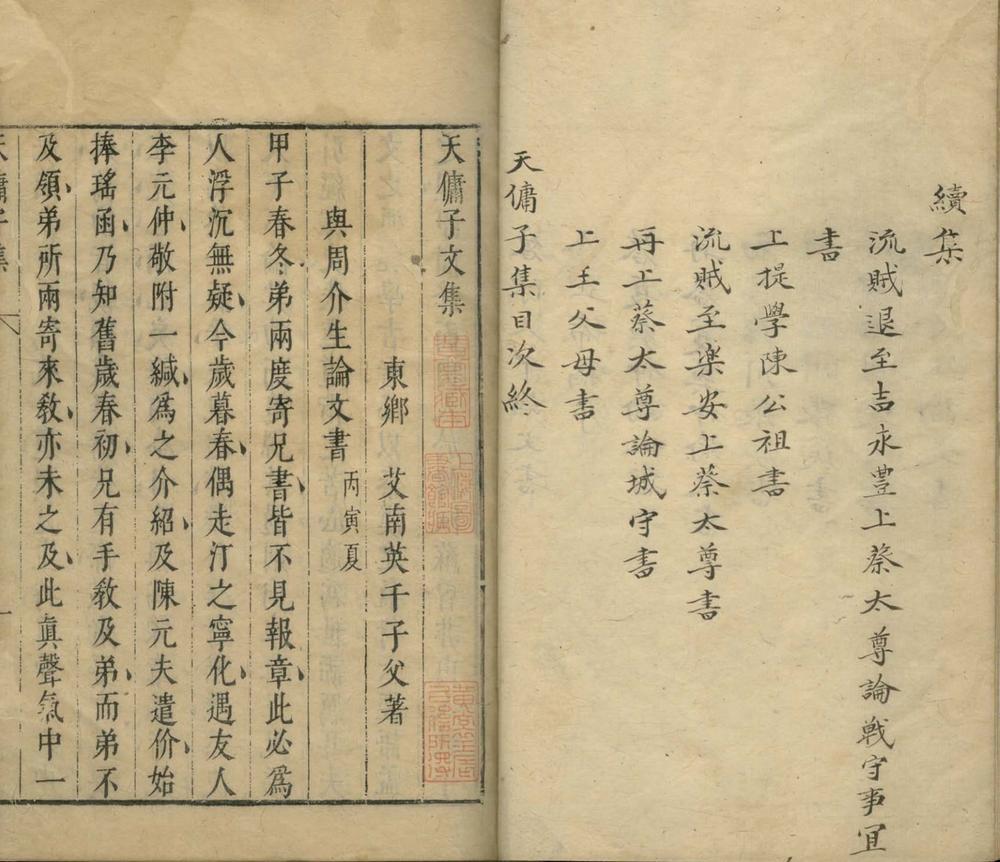 續集
流賊退至吉永豐上蔡太尊論戰守事宜
書
上提學陳公祖書
流賊至樂安上蔡太尊書
再上蔡太尊論城守書
上王父母書
天傭子集目次終
天傭子文集
東鄉　艾南英千子父著
與周介生論文書 丙寅夏
甲子春冬弟兩度寄兄書皆不見報章此必爲
人浮沉無疑今歲暮春偶走汀之寧化遇友人
李元仲敬附一緘爲之介紹及陳元夫遣价始
捧瑤函乃知舊歲春初兄有手教及弟而弟不
及領弟所兩寄來教亦未之及此眞聲氣中一
天傭子集
一